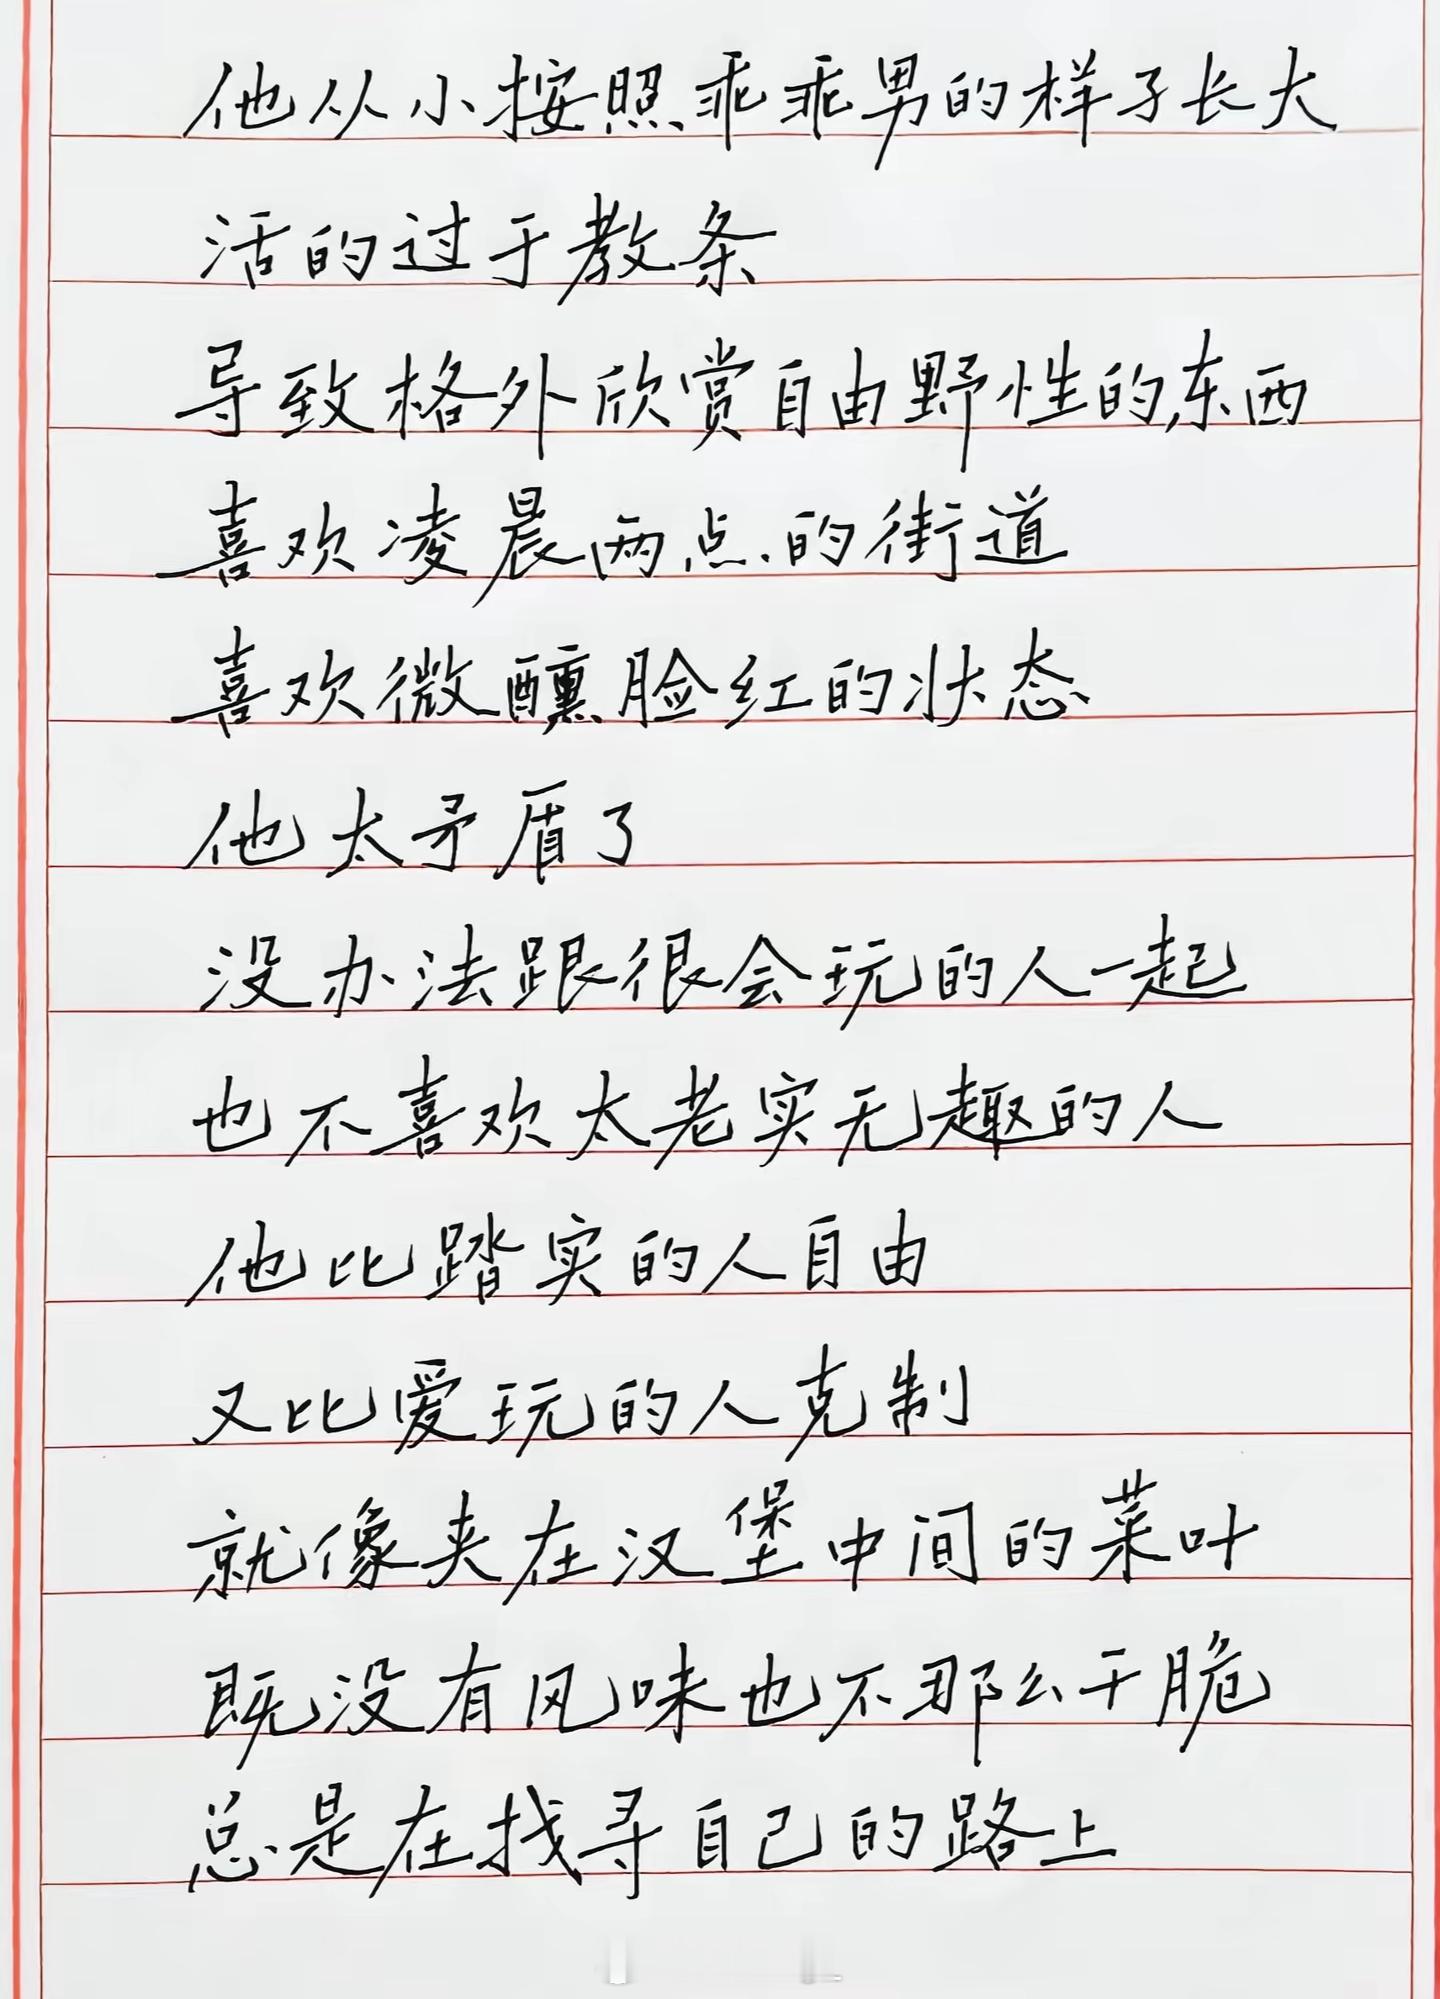 他从小按照乖乖男的样子长大
活的过于教条
导致格外欣赏自由野性的东西
喜欢凌晨两点的街道
喜欢微醺脸红的状态
他太矛盾了
没办法跟很会玩的人一起
也不喜欢太老实无趣的人
他比踏实的人自由
又比爱玩的人克制
就像夹在汉堡中间的菜叶
既没有风味也不那么干脆
总是在找寻自己的路上